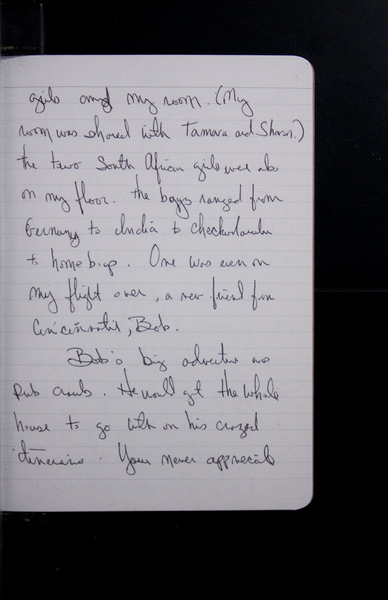 girls and my room. (My
room was shared with Tamara and Sharon.)
the two South African girls were also
on my floor. the boys ranged from
Germany to India to
to home b. up. One was even on
my flight over, a new friend from
Cincinnati, Bob.
Bob's big adventure was
Pub crawls. He would get the whole
house to go with on his crazed
itineraries. You never appreciate